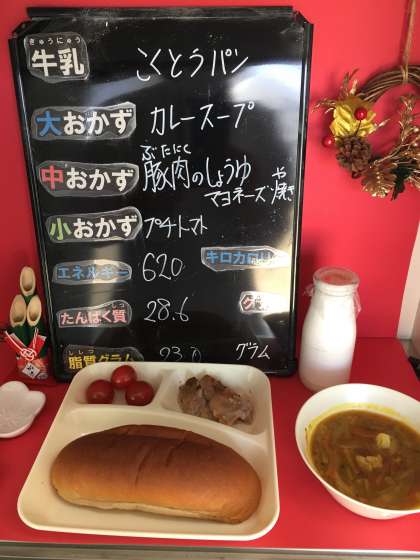 ぎゅうにゅう
牛乳 こくとうパン
大おかず カレースープ
ぶたにく
中おかず 豚肉のしょうゆ
マヨネーズ焼き
や
小おかず プチトマト
エネルギー 620 キロカロリー
しつ
たんぱく質 28.6
ししつ
脂質グラム 23.0 グラム